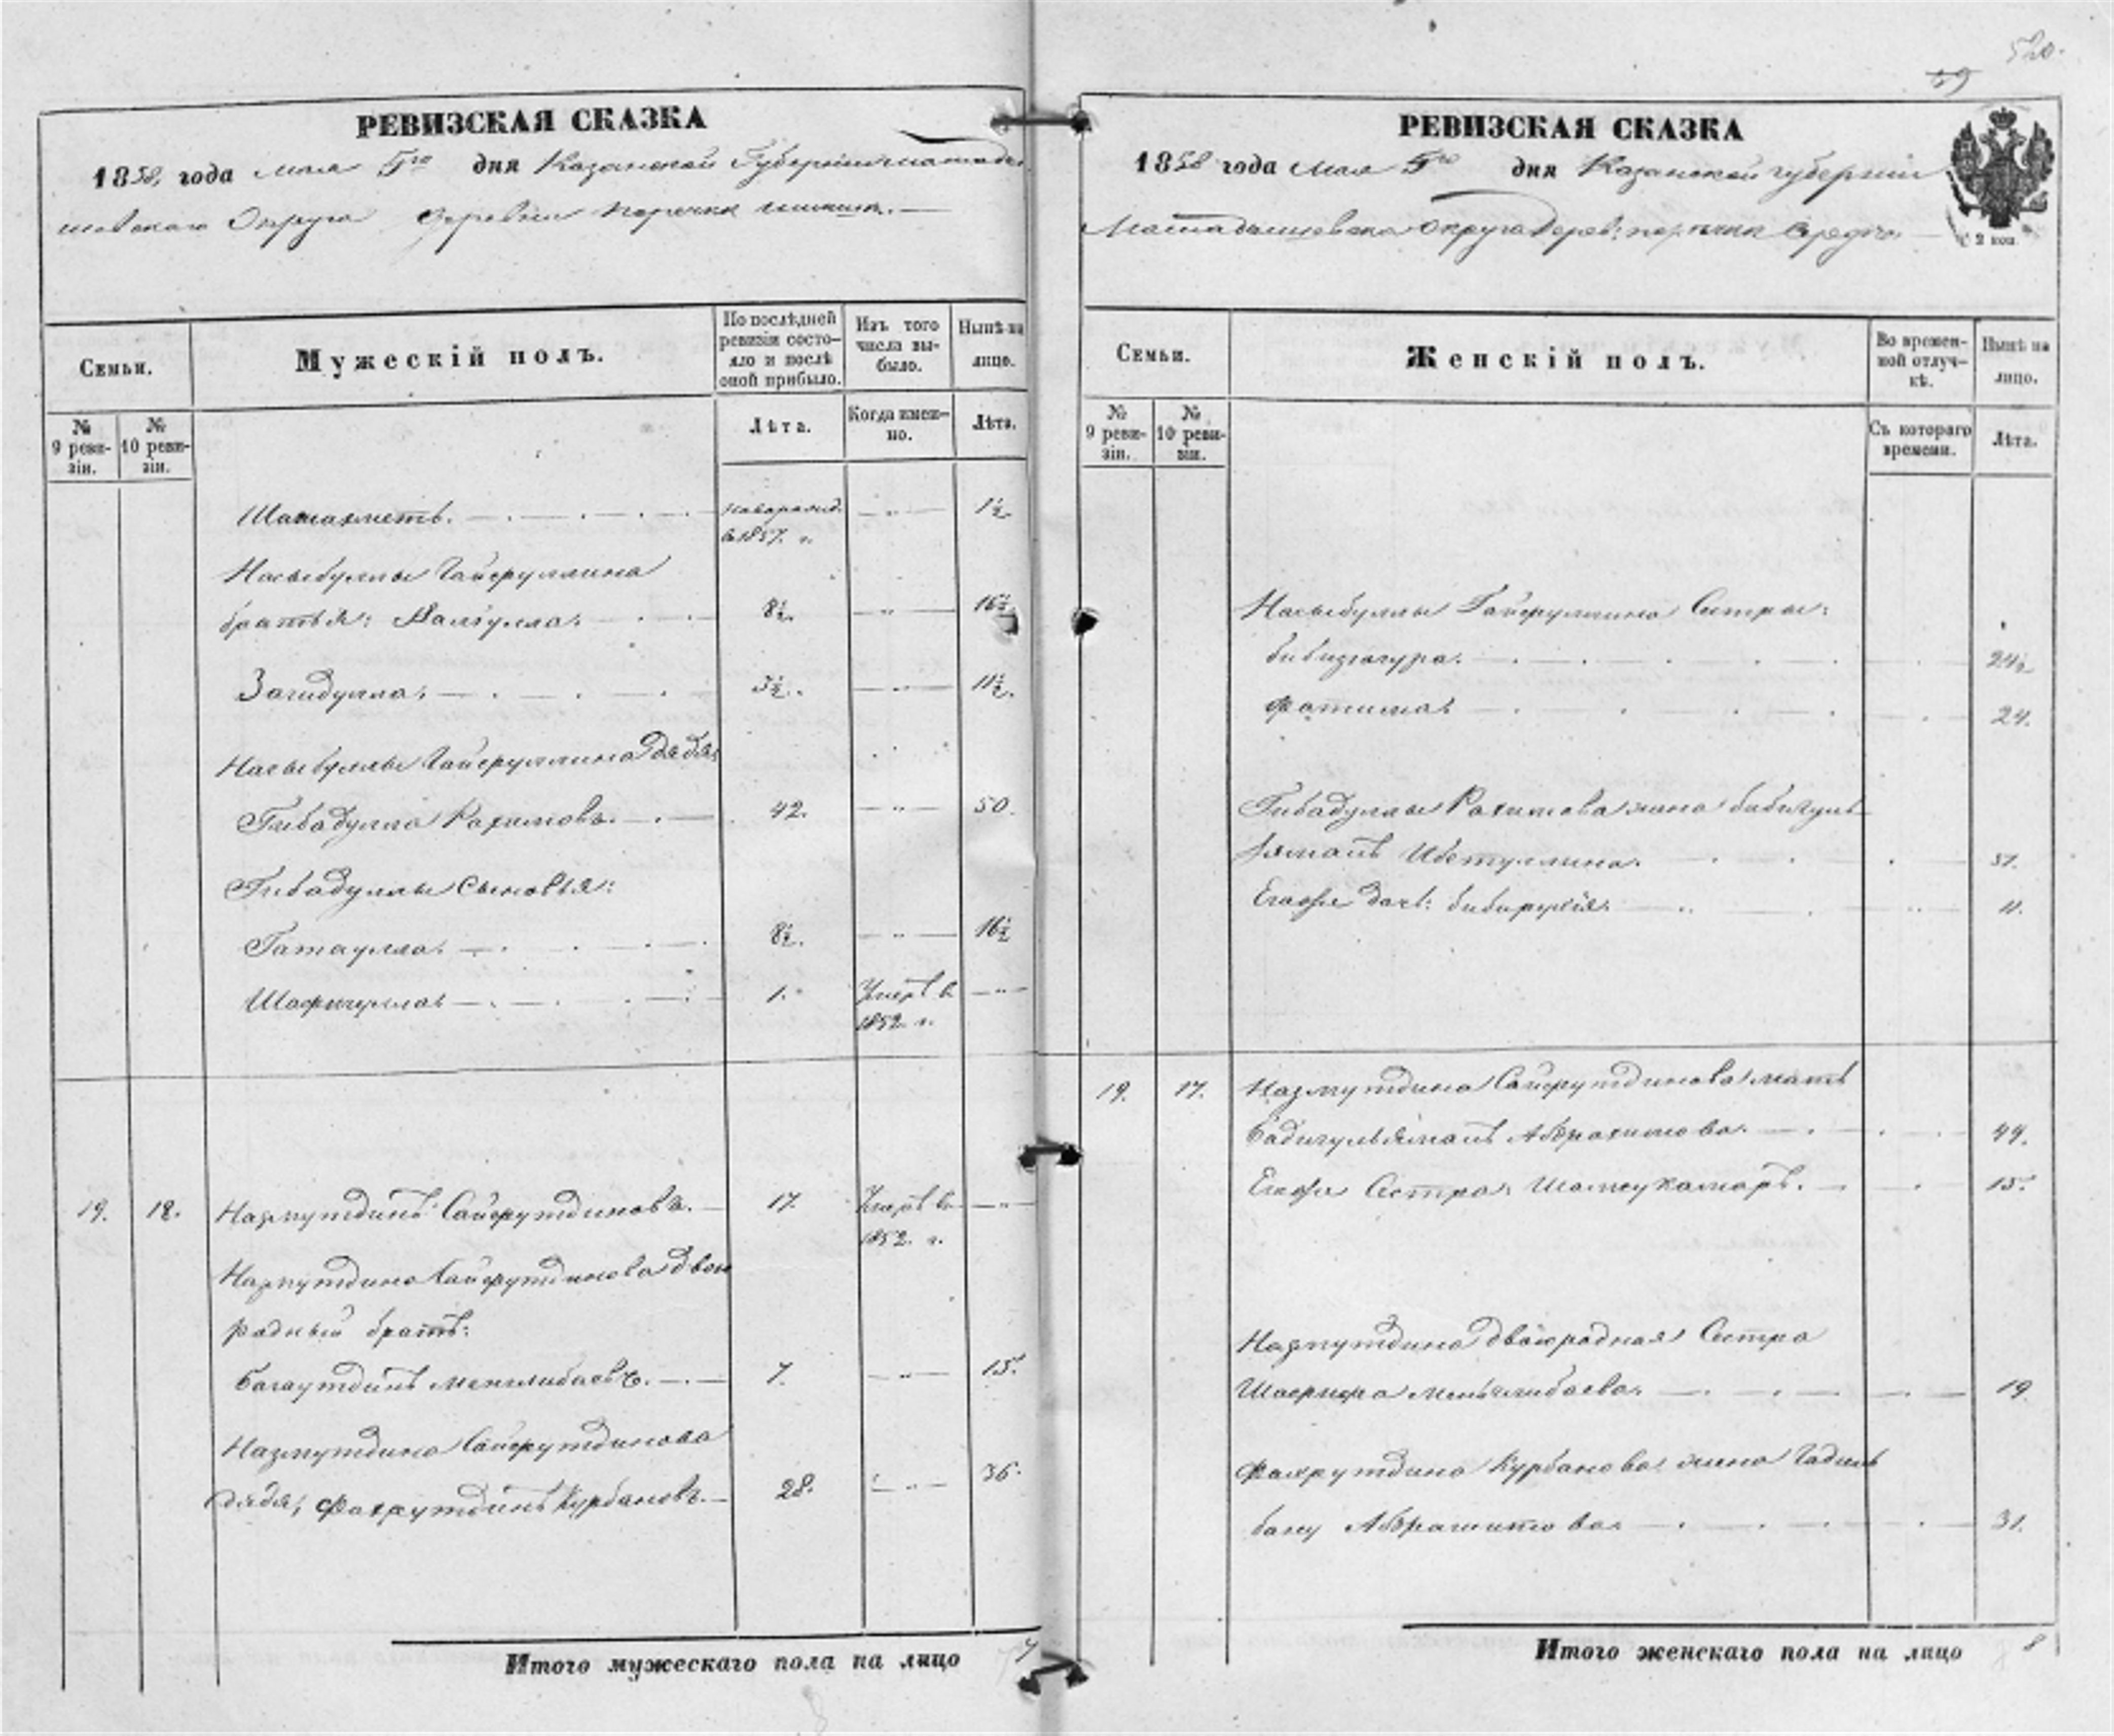 520.
49
РЕВИЗСКАЯ СКАЗКА
1858 года мая 5го дня Казанской Губернии мамады-
шевскаго Округа деревни
Семьи.
Мужескій полъ.
По послѣдней ревизіи состояло и послѣ оной прибыло.
Изъ того числа выбыло.
Нынѣ на лицо.
№ 9 ревизіи.
№ 10 ревизіи.
Лѣта.
Когда имен-но.
Лѣта.
Шамахметъ. новорожд. в 1857. г. 1½
Насыбуллы Гайфуллина
братья: Валіулла. 8½. 16½
Загидулла. 3½. 11½.
Насыбуллы Гайфуллина дядя
Гибадулла Рахимовъ. 42. 50.
Гибадуллы сыновья:
Гатаулла. 8½. 16½
Шафигулла 1. Умеръ в 1852 г.
19. 18. Назмутдинъ Сайфутдиновъ. 17. Умеръ в 1852. г.
Назмутдина Сайфутдинова двою
родный братъ:
Багаутдинъ Менглибаевъ. 7. 15.
Назмутдина Сайфутдинова
дядя, Фахрутдинъ Курбановъ. 28. 36.
Итого мужескаго пола на лицо 7
РЕВИЗСКАЯ СКАЗКА
1858 года мая 5го дня Казанской губерніи
Мамадышевскаго округа дерев:
2 коп.
Семьи.
Женскій полъ.
Во времен-ной отлуч-кѣ.
Нынѣ на лицо.
№ 9 ревизіи.
№ 10 ревизіи.
Съ котораго времени.
Лѣта.
Насыбуллы Гайфуллина Сестры:
бибизягура. 24½
Фатима. 24.
Гибадуллы Рахимова жена бибигуль
зяманъ 51.
Егоже дочь: 11.
19. 17. Назмутдина Сайфутдинова мать
бадигульзяманъ Абдрахимова. 44.
Егоже Сестра: Шамсукамаръ. 15.
Назмутдина двоюродная Сестра
Шарифа Менглибаева. 19.
Фахрутдина Курбанова жена Гадиль
бану Абдрашитова 31.
Итого женскаго пола на лицо 8